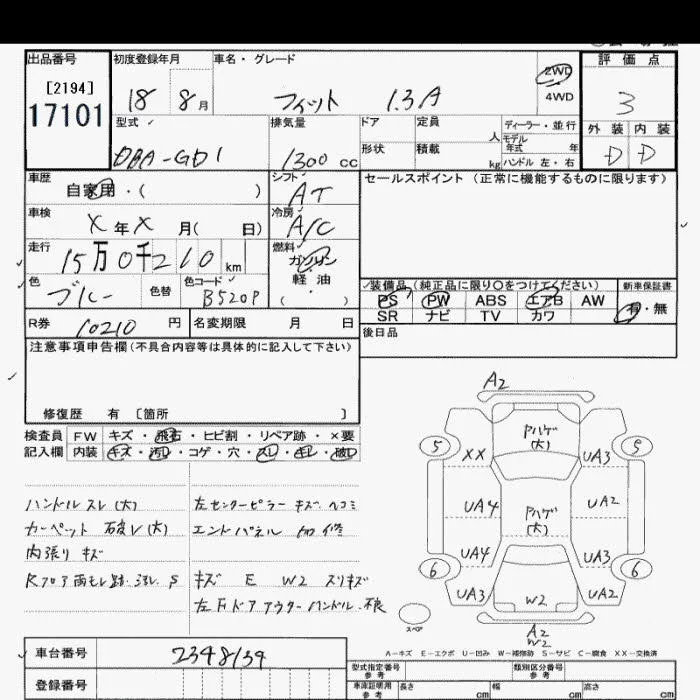 出品番号 初度登録年月 車名・グレード 2WD 評価点
[2194] 17101 18 8月 フィット 1.3A 4WD 3
型式 排気量 ドア 定員 人 ディーラー・並行 外装 内装
DBA-GD1 1300cc 形状 積載 kg モデル年式 年 ハンドル 左・右 D D
車歴 自家用・( ) シフト AT セールスポイント(正常に機能するものに限ります)
車検 X年X月( 日) 冷房 A/C
走行 15万0千210km 燃料 ガソリン
色 ブルー 色替 色コード B520P 軽油 ( ) 装備品(純正品に限り〇をつけてください) 新車保証書
PS PW ABS エアB AW 有・無
SR ナビ TV カワ
R券 10210円 名変期限 月 日 後日品
注意事項申告欄(不具合内容等は具体的に記入して下さい)
修復歴 有 〔箇所 〕
検査員 FW キズ・飛石・ヒビ割・リペア跡・×要
記入欄 内装 キズ・汚レ・コゲ・穴・スレ・キレ・破レ
ハンドルスレ(大) 左センターピラー キズ ヘコミ
カーペット 破レ(大) エンドパネル 加修
内張り キズ
Rフロア雨もレ跡 S キズ E W2 スリキズ
左Fドアアウターハンドル不良
A2
5 XX Pハゲ(大) UA3 5
UA4 Pハゲ(大) UA2
UA4 UA3
6 UA3 W2 UA2 6
スペア A2 W2
A-キズ E-エクボ U-凹み W-補修跡 S-サビ C-腐食 XX-交換済
車台番号 2348134
登録番号
型式指定番号 参考 類別区分番号 参考
車庫証明用 参考 長さ cm 幅 cm 高さ cm